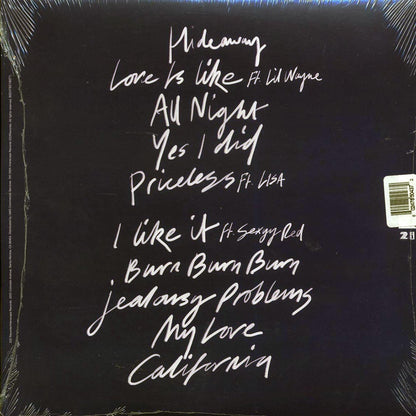 Hideaway
Love Is Like Ft. Lil Wayne
All Night
Yes I did
Priceless Ft. LISA
I like it ft. Sexyy Red
Burn Burn Burn
jealousy Problems
My Love
California